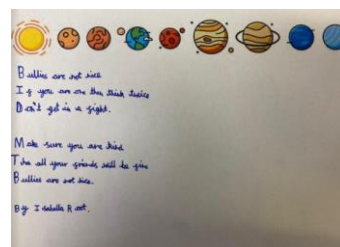 Bullies are not nice
If you are one then think twice
Don't get in a fight.
Make sure you are kind
The all your friends will be fine
Bullies are not nice.
By Isabella Root.